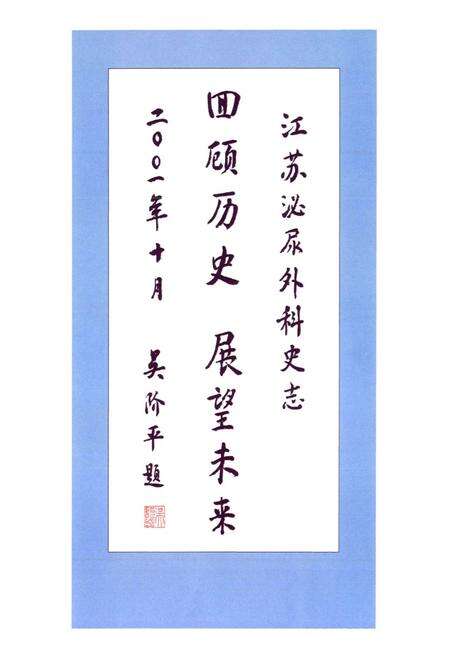 江苏泌尿外科史志
回顾历史 展望未来
二〇〇一年十月 吴阶平题